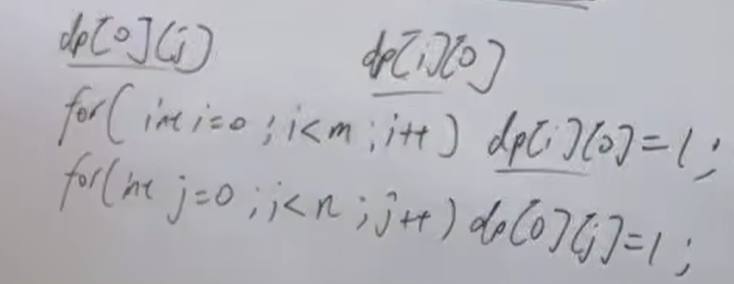 dp[0][j] dp[i][0]
for(int i=0;i<m;i++) dp[i][0]=1;
for(int j=0;j<n;j++) dp[0][j]=1;